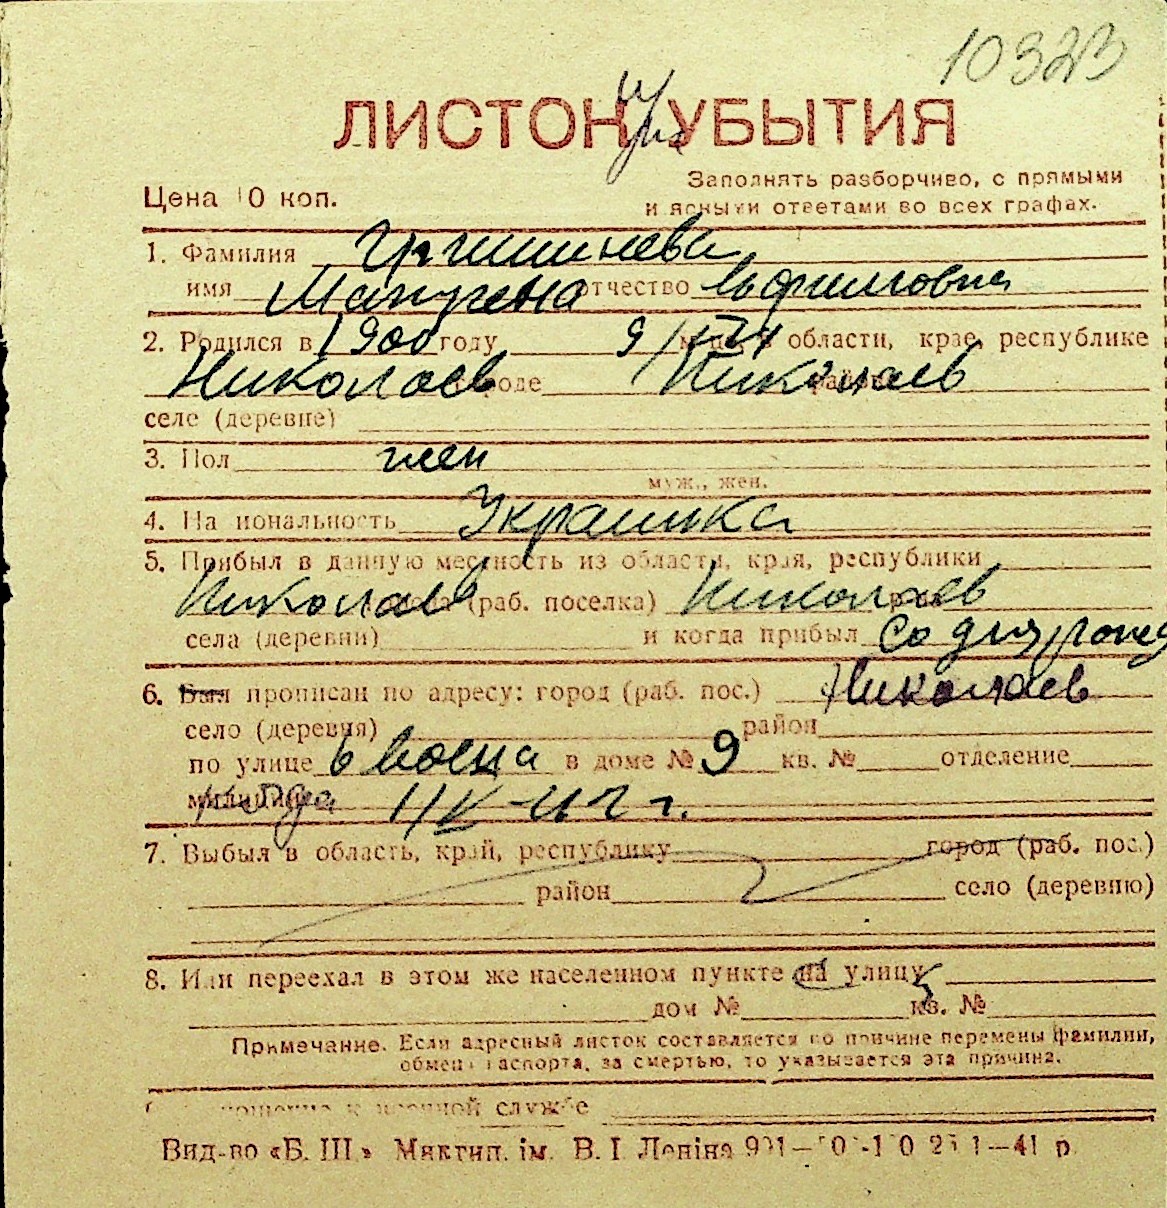 10323
ЛИСТОК УБЫТИЯ
Заполнять разборчиво, с прямыми
Цена 10 коп.
и ясными ответами во всех графах.
1. Фамилия
имя отчество Ефимовна
2. Родился в 1900 году 9/ области, крае, республике
Николаев городе Николаев районе
селе (деревне)
3. Пол жен
муж., жен.
4. Национальность Украинка
5. Прибыл в данную местность из области, края, республики
Николаев (раб. поселка) Николаев
села (деревни) и когда прибыл
6. Был прописан по адресу: город (раб. пос.) Николаев
село (деревня) район
по улице 6 Воена в доме № 9 кв. № отделение
милиции
7. Выбыл в область, край, республику город (раб. пос.)
район село (деревню)
8. Или переехал в этом же населенном пункте на улицу
дом № кв. №
Примечание. Если адресный листок составляется по причине перемены фамилии,
обмена паспорта, за смертью, то указывается эта причина.
к военной службе
Вид-во «Б. Ш.» Миктип. ім. В. І Леніна